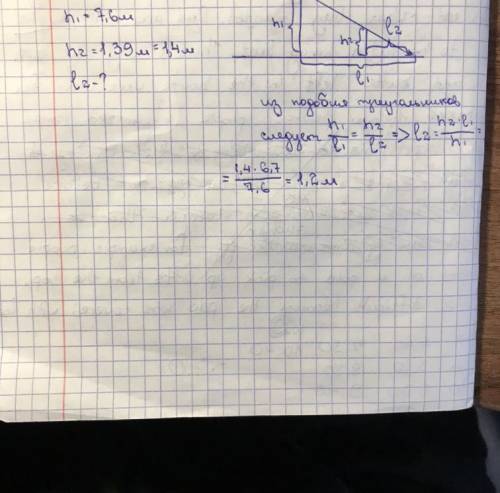 h₁ = 7,6м
h₂ = 1,39м = 1,4м
l₂ - ?
h₁
h₂
l₂
l₁
из подобия треугольников
следует h₁/l₁ = h₂/l₂ => l₂ = h₂·l₁/h₁ =
= 1,4·6,7/7,6 = 1,2м